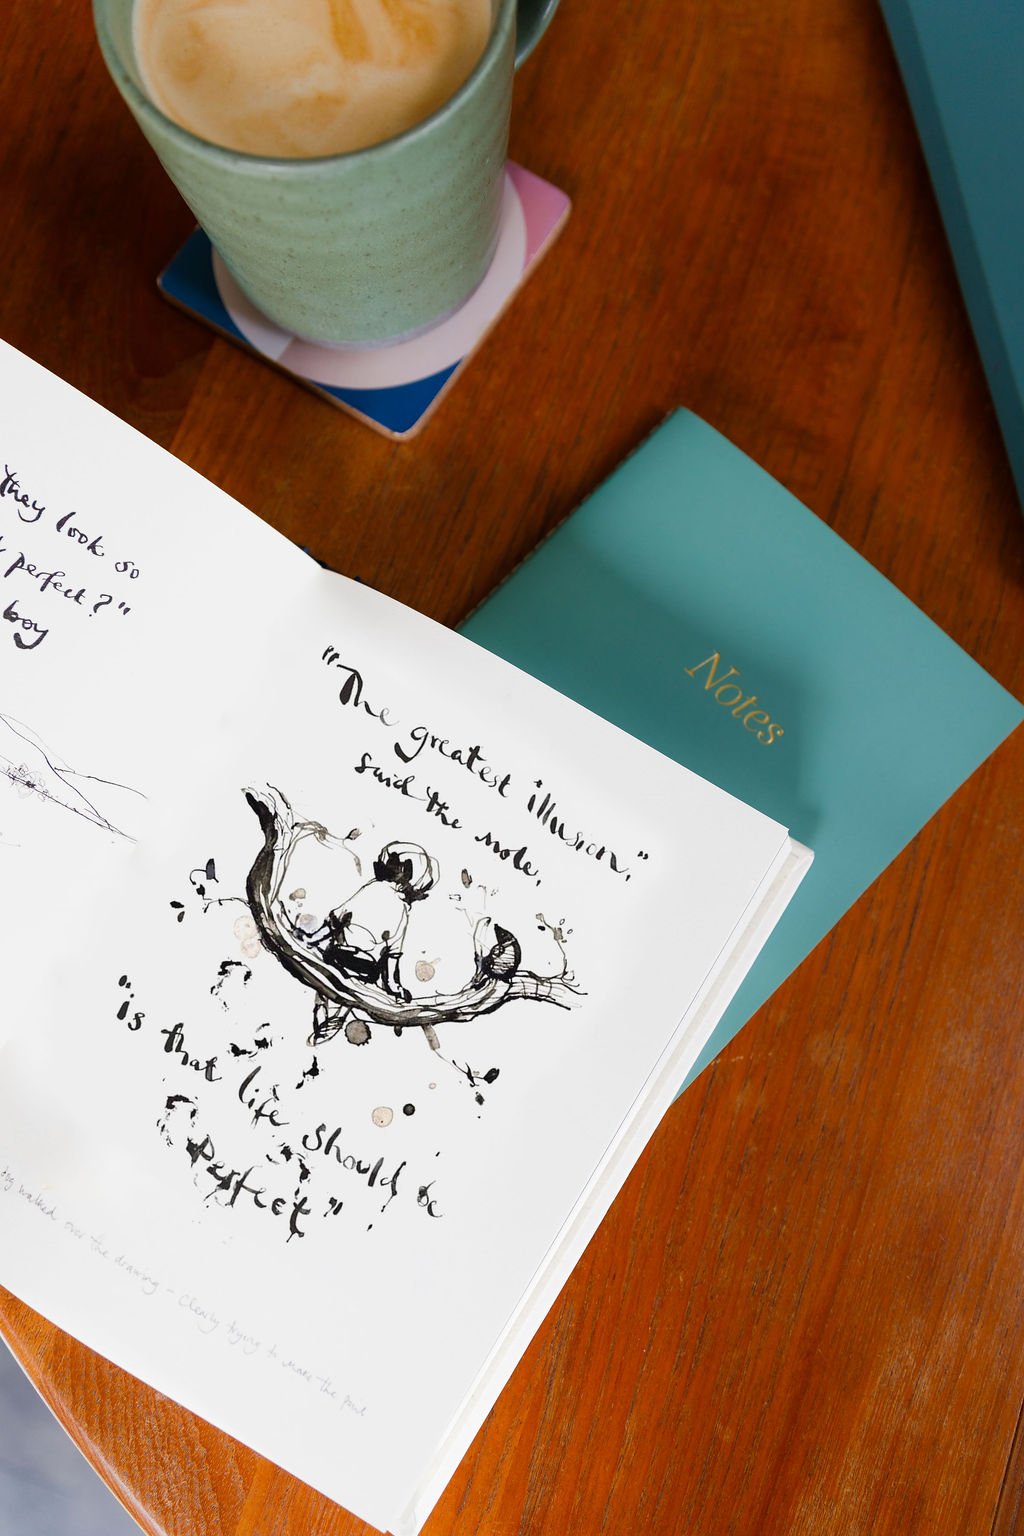 they look so
perfect?"
boy
"The greatest illusion",
said the mole,
"is that life should be
perfect".
walked over the drawing - clearly trying to make the point
Notes